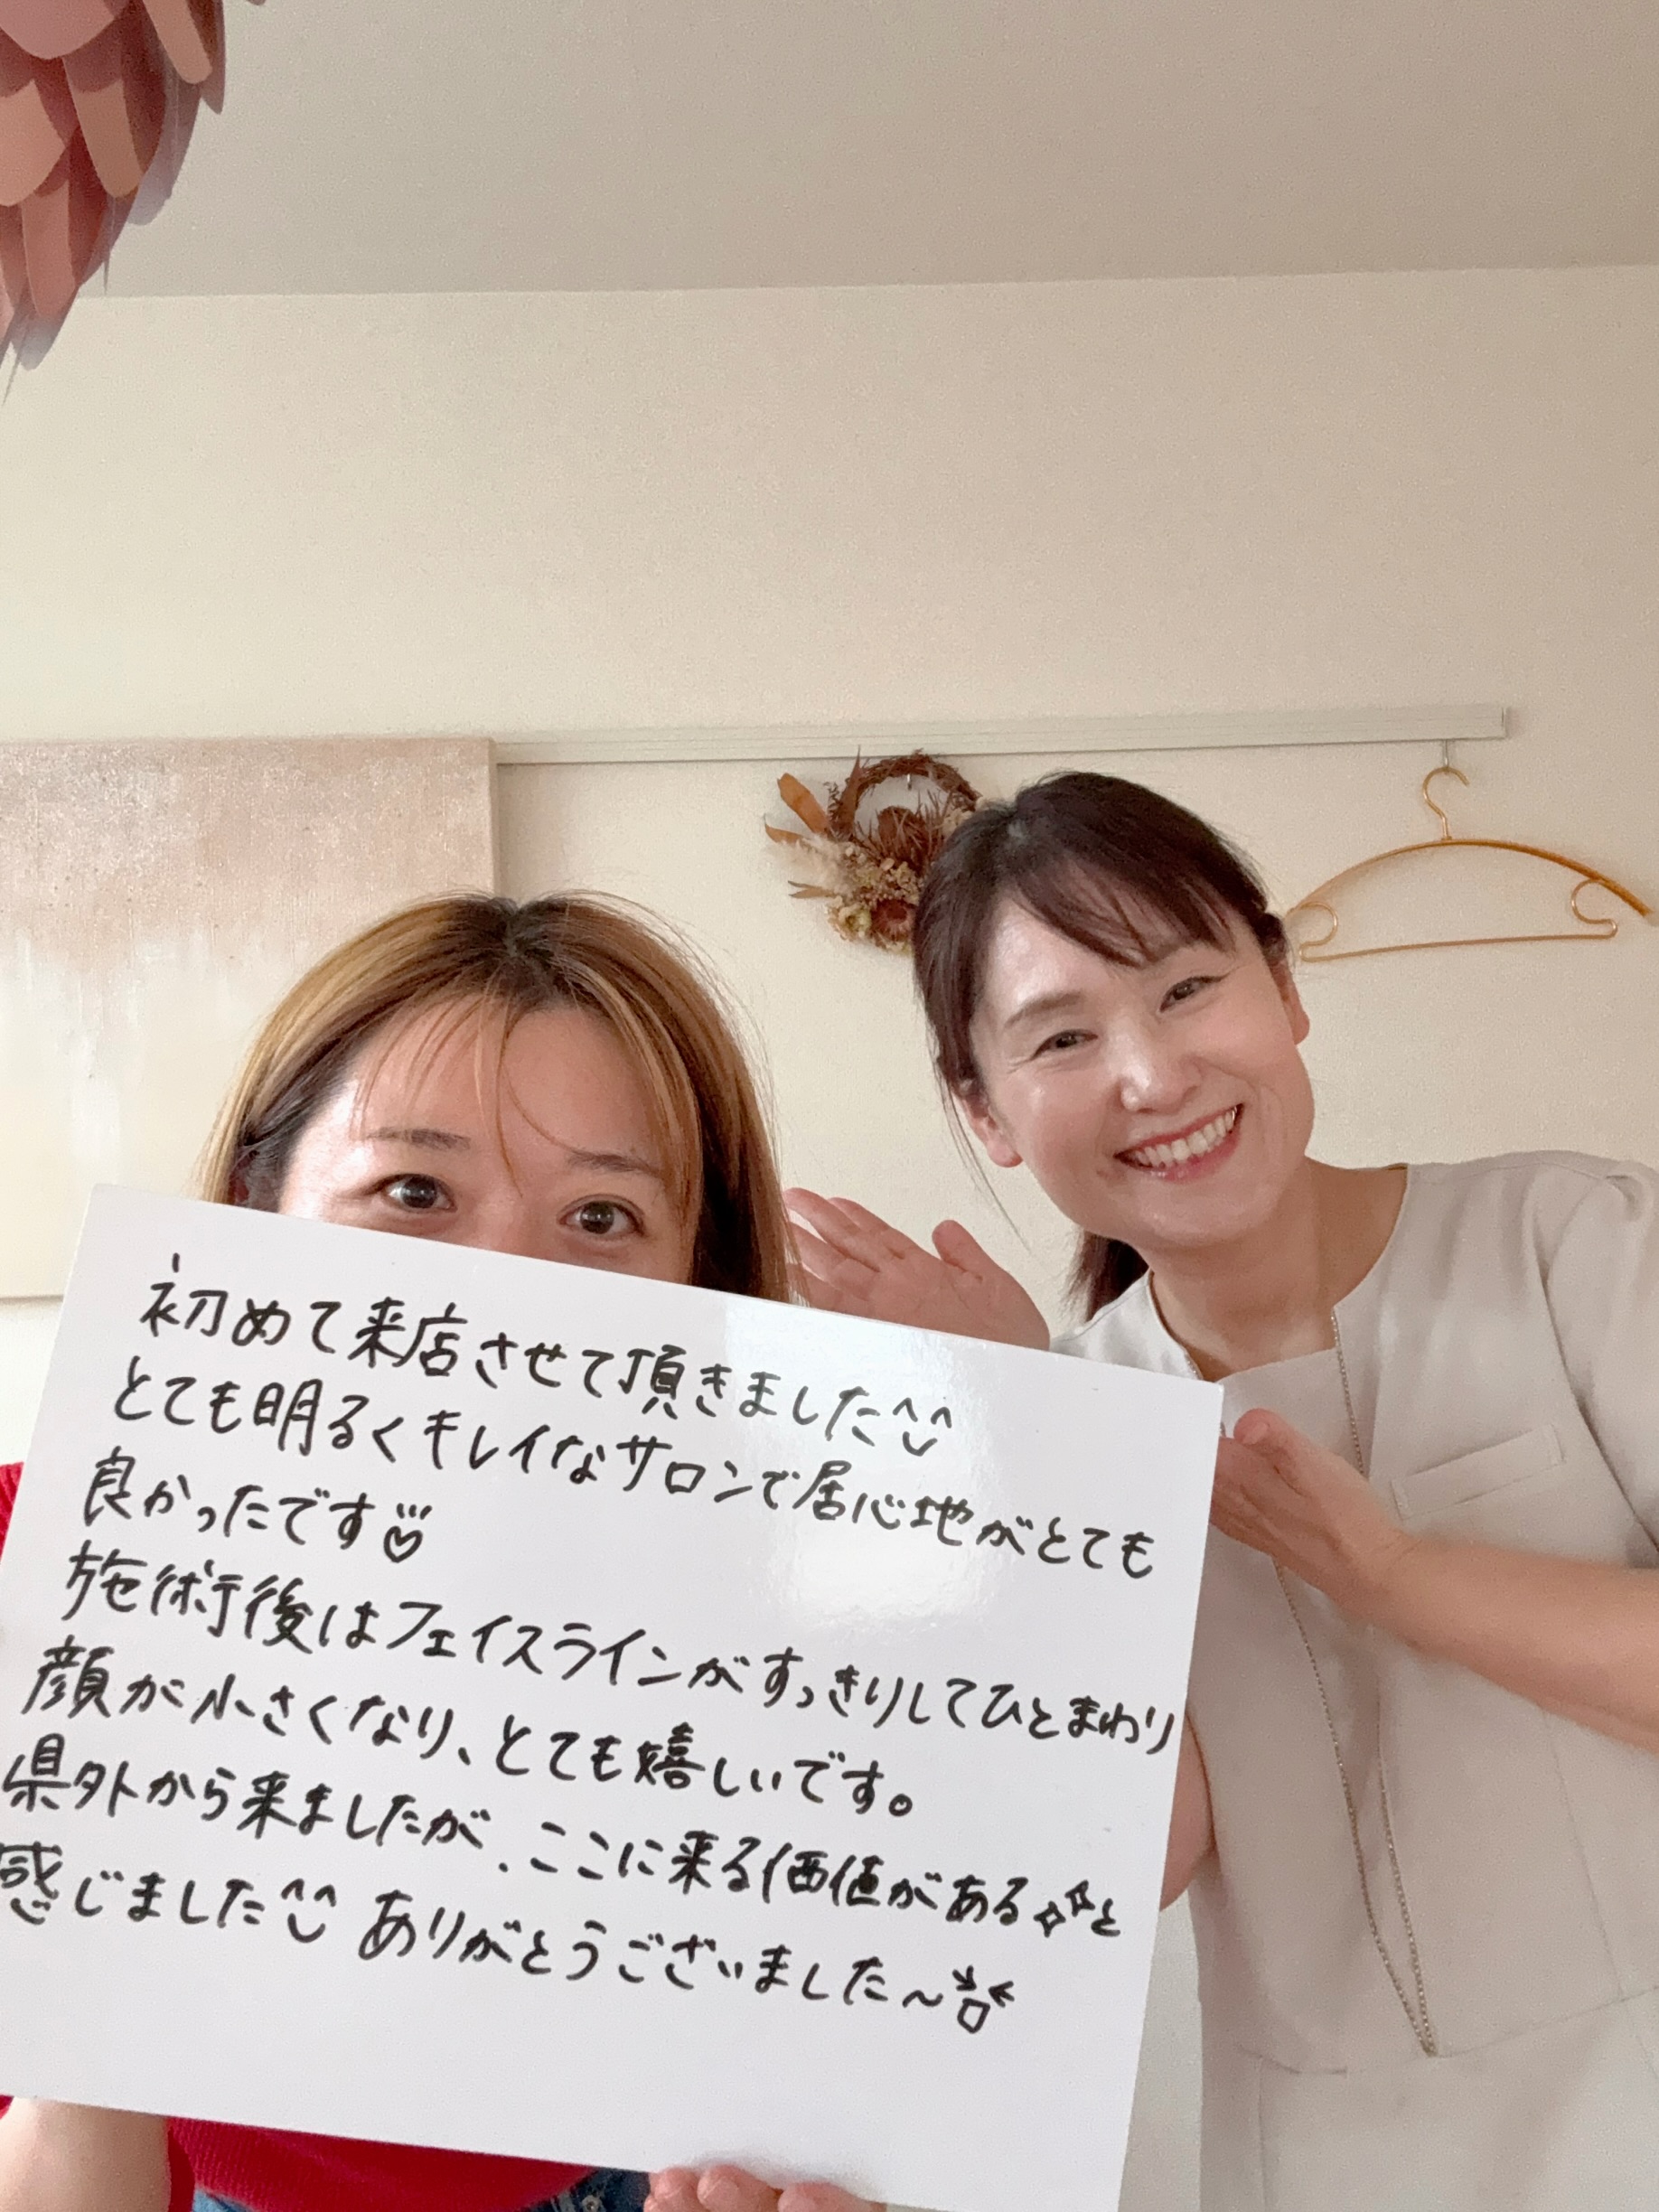 初めて来店させて頂きました^^
とても明るくキレイなサロンで居心地がとても
良かったです♡
施術後はフェイスラインがすっきりしてひとまわり
顔が小さくなり、とても嬉しいです。
県外から来ましたが、ここに来る価値がある✧と
感じました^^ ありがとうございました〜